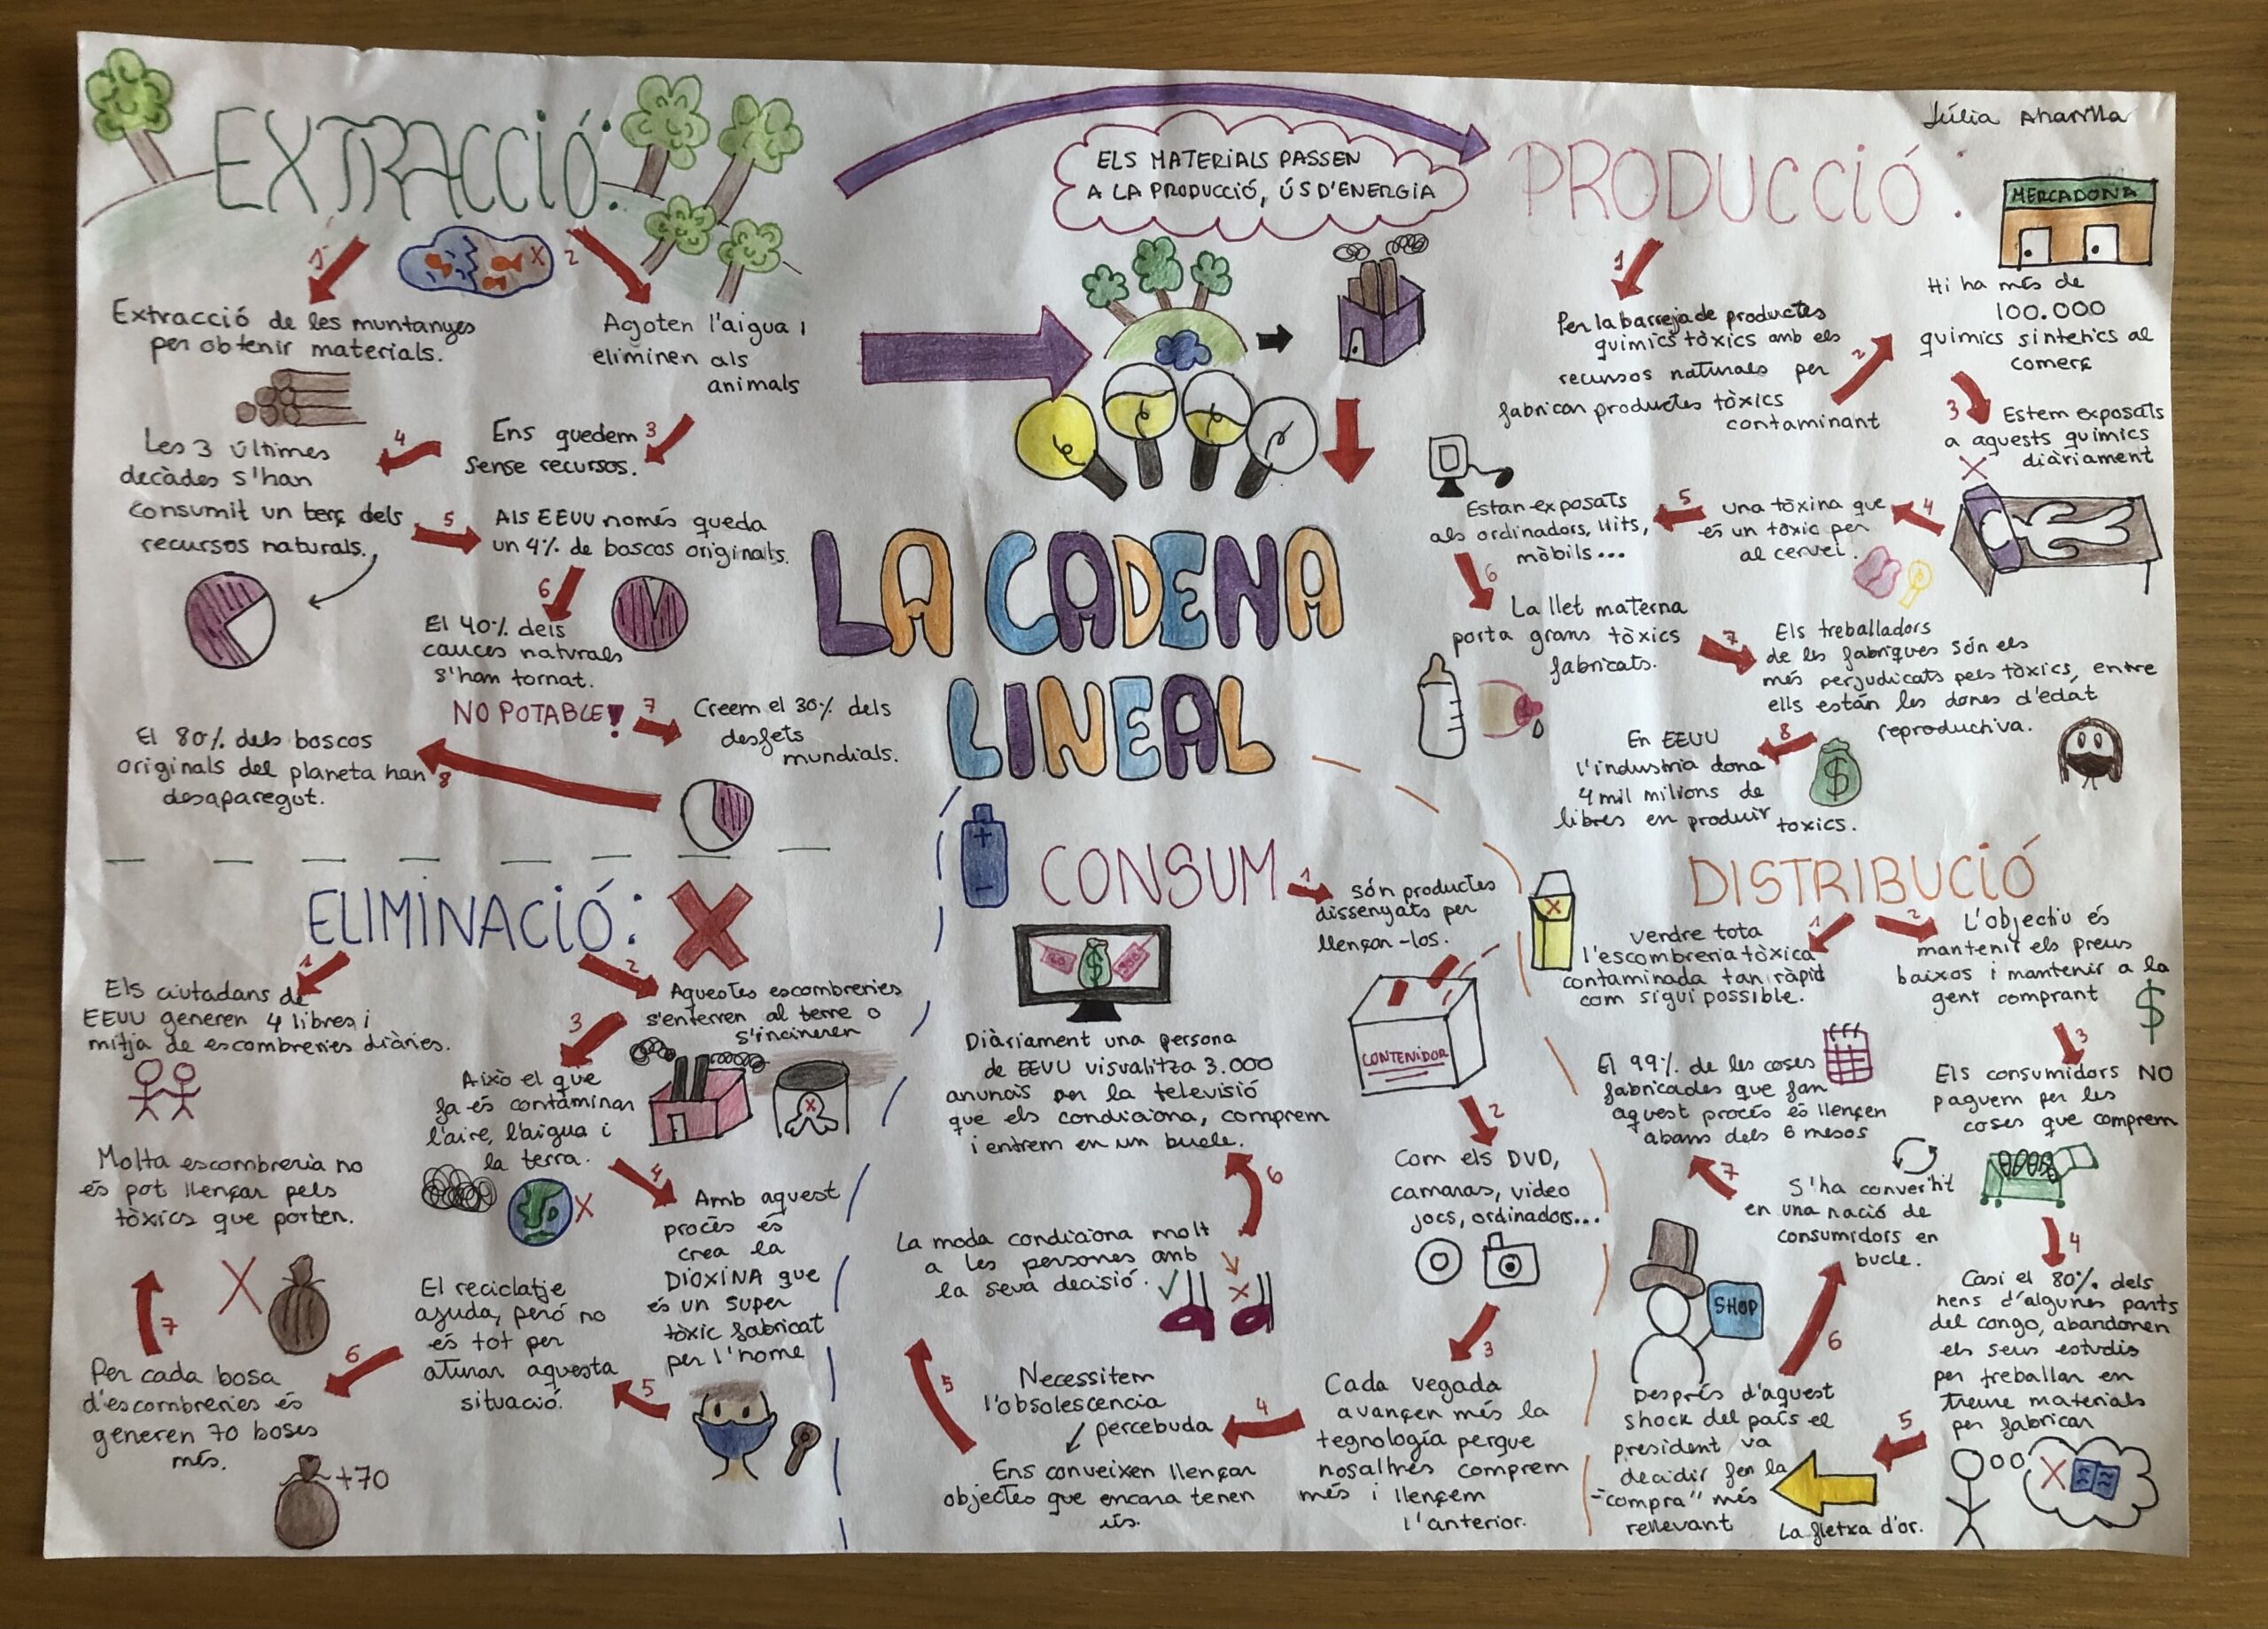 Júlia Aharilla
EXTRACCIÓ:
1
Extracció de les muntanyes
per obtenir materials.
2
Agoten l'aigua i
eliminen als
animals
3
Ens quedem
sense recursos.
4
Les 3 últimes
decàdes s'han
consumit un terç dels
recursos naturals.
5
Als EEUU només queda
un 4% de boscos originals.
6
El 40% dels
cauces naturals
s'han tornat.
NO POTABLE!
7
Creem el 30% dels
desfets
mundials.
8
El 80% dels boscos
originals del planeta han
desaparegut.
ELS MATERIALS PASSEN
A LA PRODUCCIÓ, ÚS D'ENERGIA
LA CADENA
LINEAL
PRODUCCIÓ:
MERCADONA
1
Per la barreja de productes
químics tòxics amb els
recursos naturals per
fabricar productes tòxics
contaminant
2
Hi ha més de
100.000
químics sintetics al
comerç
3
Estem exposats
a aquests químics
diàriament
4
una tòxina que
és un tòxic per
al cervei.
5
Estan exposats
als ordinadors, llits,
mòbils...
6
La llet materna
porta grans tòxics
fabricats.
7
Els treballadors
de les fabriques són els
més perjudicats pels tòxics, entre
ells están les dones d'edat
reproductiva.
8
En EEUU
l'industria dona
4 mil milions de
libres en produir toxics.
$
DISTRIBUCIÓ
1
Vendre tota
l'escombreria tòxica
contaminada tan ràpid
com sigui possible.
2
L'objectiu és
mantenir els preus
baixos i mantenir a la
gent comprant
$
3
Els consumidors NO
paguem per les
coses que comprem
4
Casi el 80% dels
nens d'algunes parts
del congo, abandonen
els seus estudis
per treballar en
treure materials
per fabricar
5
La fletxa d'or.
Després d'aquest
shock del país el
president va
decidir fer la
"compra" més
rellevant
SHOP
6
S'ha convertit
en una nació de
consumidors en
bucle.
7
El 99% de les coses
fabricades que fan
aquest procés és llençen
abans dels 6 mesos
CONSUM
+
-
1
són productes
dissenyats per
llençar-los.
CONTENIDOR
2
Com els DVD,
camaras, video
jocs, ordinadors...
3
Cada vegada
avançen més la
tegnología perque
nosaltres comprem
més i llençem
l'anterior.
4
Necessitem
l'obsolescencia
percebuda
Ens conveixen llençar
objectes que encara tenen
ús.
5
La moda condiciona molt
a les persones amb
la seva decisió.
6
$
Diàriament una persona
de EEUU visualitza 3.000
anuncis en la televisió
que els condiciona, comprem
i entrem en un bucle.
ELIMINACIÓ:
1
Els ciutadans de
EEUU generen 4 libres i
mitja de escombreries diàries.
2
Aquestes escombreries
s'enterren al terre o
s'incineren
3
Això el que
fa és contaminar
l'aire, l'aigua i
la terra.
4
Amb aquest
procés és
crea la
DIOXINA que
és un super
tòxic fabricat
per l'home
5
El reciclatje
ajuda, peró no
és tot per
aturar aquesta
situació.
6
Per cada bosa
d'escombreries és
generen 70 boses
més.
+70
7
Molta escombreria no
és pot llençar pels
tòxics que porten.